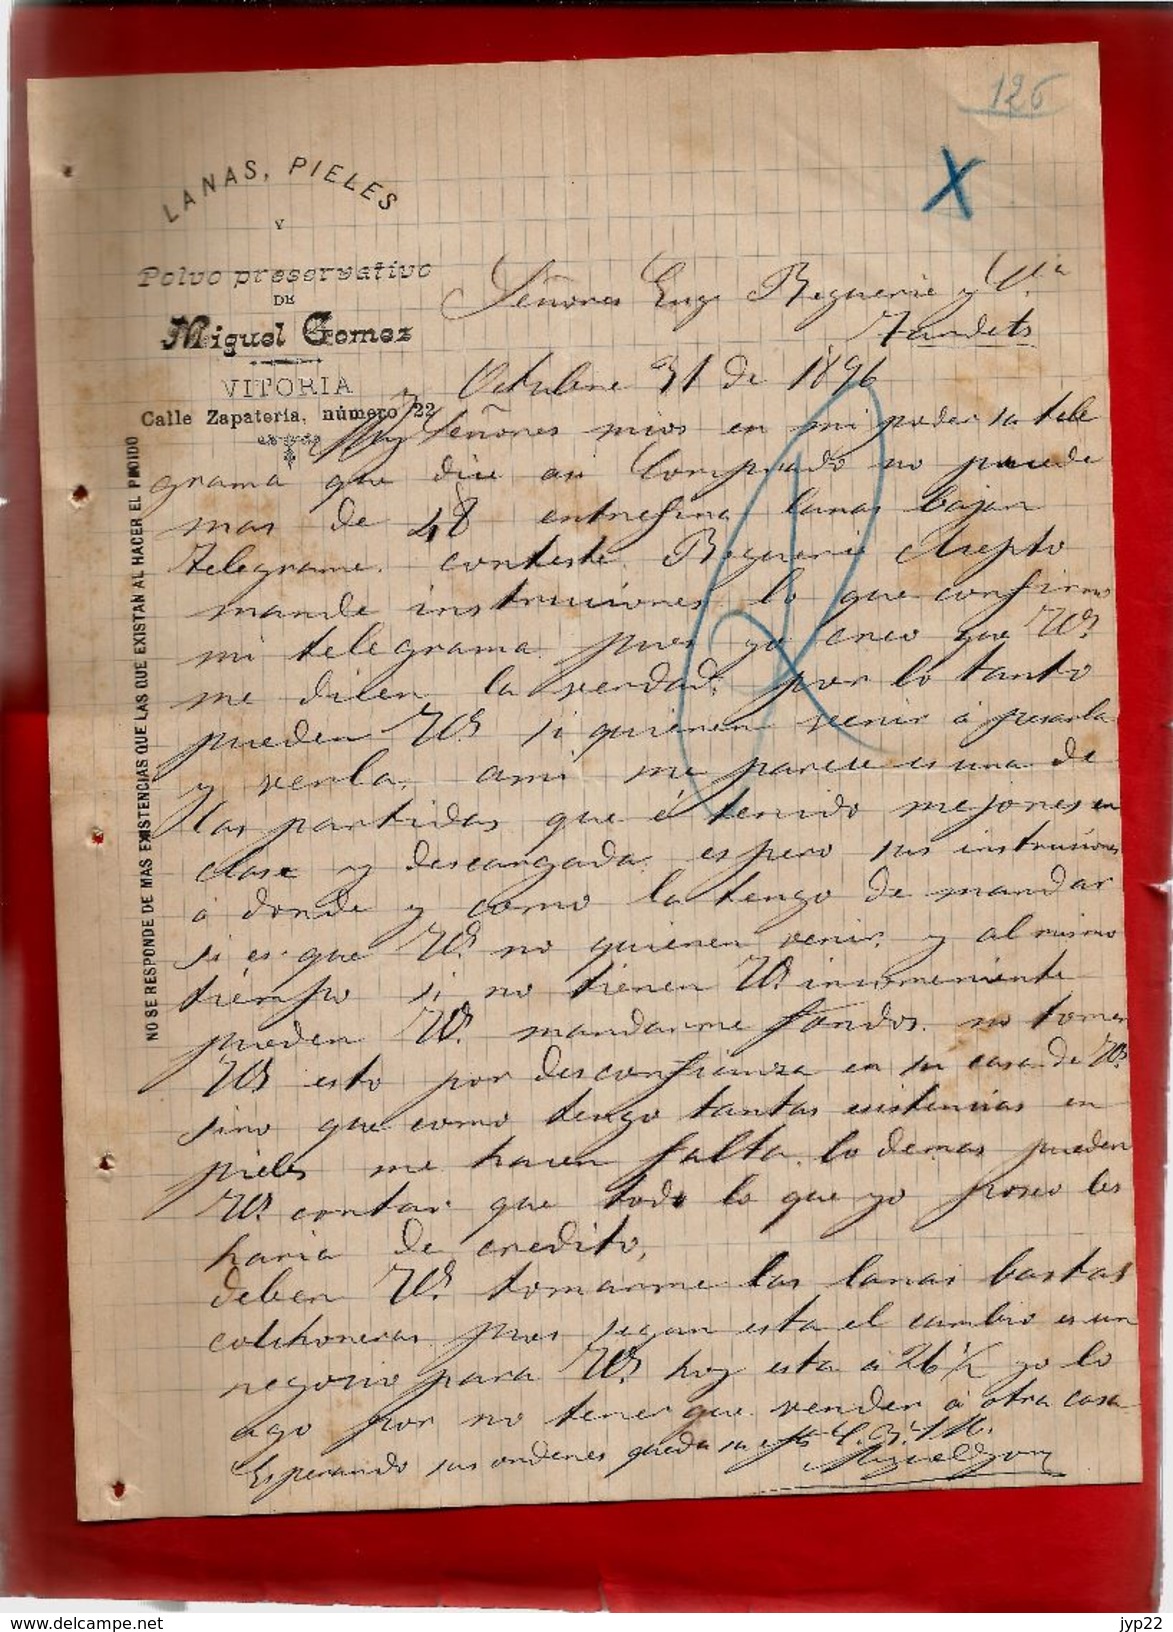 126
X
LANAS, PIELES
Y
Polvo preservativo
DE
Miguel Gomez
VITORIA
Calle Zapatería, número 22
NO SE RESPONDE DE MAS EXISTENCIAS QUE LAS QUE EXISTAN AL HACER EL PEDIDO
Señores Eug Beguerie y Cia
Tardets
Octubre 31 de 1896
Muy Señores mios en mi poder su tele
grama que dice asi Comprado no puede
mas de 48 entrefina lanas bajan
telegrame. conteste Beguerie Acepto
mande instruciones lo que confirmo
mi telegrama pues yo creo que Vds.
me dicen la verdad, por lo tanto
pueden Vds si quieren venir á pesarla
y verla, ami me parece es una de
las partidas que é tenido mejores en
clase y descargada. espero sus instrusiones
a donde y como la tengo de mandar
si es que Vds. no quieren venir, y al mismo
tiempo si no tienen Vds. inconveniente
pueden Vds. mandarme fondos. no tomen
Vds esto por desconfianza en su casa de Vds.
sino que como tengo tantas existencias en
pieles me hacen falta. lo demas pueden
Vds. contar que todo lo que yo poseo les
haria de credito,
deben Vds. tomarme las lanas bastas
colchoneras pues segun esta el cambio es un
negocio para Vds. hoy esta á 26 1/2 yo lo
ago por no tener que vender á otra casa
Esperando sus ordenes queda su
Miguel Gomez
delcampe.net
jyp22